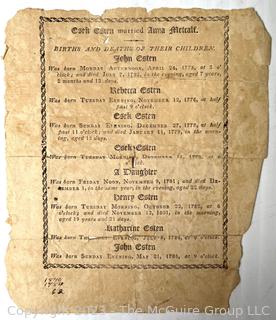 Esek Esten married Anna Metcalf.
BIRTHS AND DEATHS OF THEIR CHILDREN.
John Esten
Was born Monday Afternoon, April 24, 1775, at 2
o'clock; and died June 7, 1782, in the evening, aged 7 years,
2 months and 13 days.
Rebecca Esten
Was born Tuesday Evening, November 12, 1776, at half
past 9 o'clock.
Esek Esten
Was born Sunday Evening, December 27, 1778, at
half past 11 o'clock; and died January 11, 1779, in the morning,
aged 15 days.
Esek Esten
Was born Tuesday Morning, December
A Daughter
Was born Friday Noon, November 9, 1781; and died
December 1, in the same year, in the evening, aged 22 days.
Henry Esten
Was born Tuesday Morning, October 22, 1782, at
o'clock; and died November 12, 1801, in the morning,
aged 19 years and 21 days.
Katharine Esten
Was born Evening, July 8, 1784, o'clock.
John Esten
Was born Sunday Evening, May 21, 1786, at o'clock.
Copyright 2023 The McGuire Group LLC